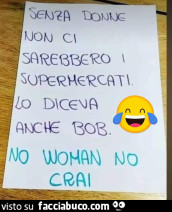 SENZA DONNE
NON CI
SAREBBERO I
SUPERMERCATI.
LO DICEVA
ANCHE BOB.
NO WOMAN NO
CRAI
visto su facciabuco.com